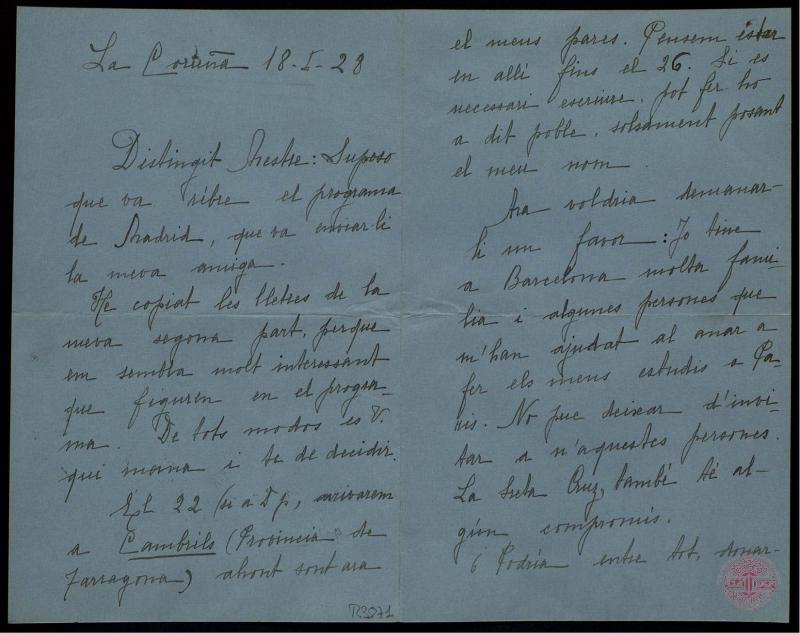 La Coruña 18-I-28
Distingit Mestre: Suposo
que va rébre el programa
de Madrid, que va enviar-li
la meva amiga.
He copiat les lletres de la
meva segona part, perque
em sembla molt interessant
que figuren en el progra-
ma. De tots modos es V.
qui mana i te de decidir.
El 22 (si a D p, arrivarem
a Cambrils (Provincia de
Tarragona) ahont sont ara
R3971
el meus pares. Pensem estar
en allí fins el 26. Si es
necessari escriure, pot fer-ho
a dit poble, solsament posant
el meu nom.
Ara voldria demanar-
li un favor: Jo tinc
a Barcelona molta fami-
lia i algunes persones que
m'han ajudat al anar a
fer els meus estudis a Pa-
ris. No puc deixar d'invi-
tar a n'aquestes persones.
La Cruz, també té al-
gún compromis.
¿Podría entre tot, donar-